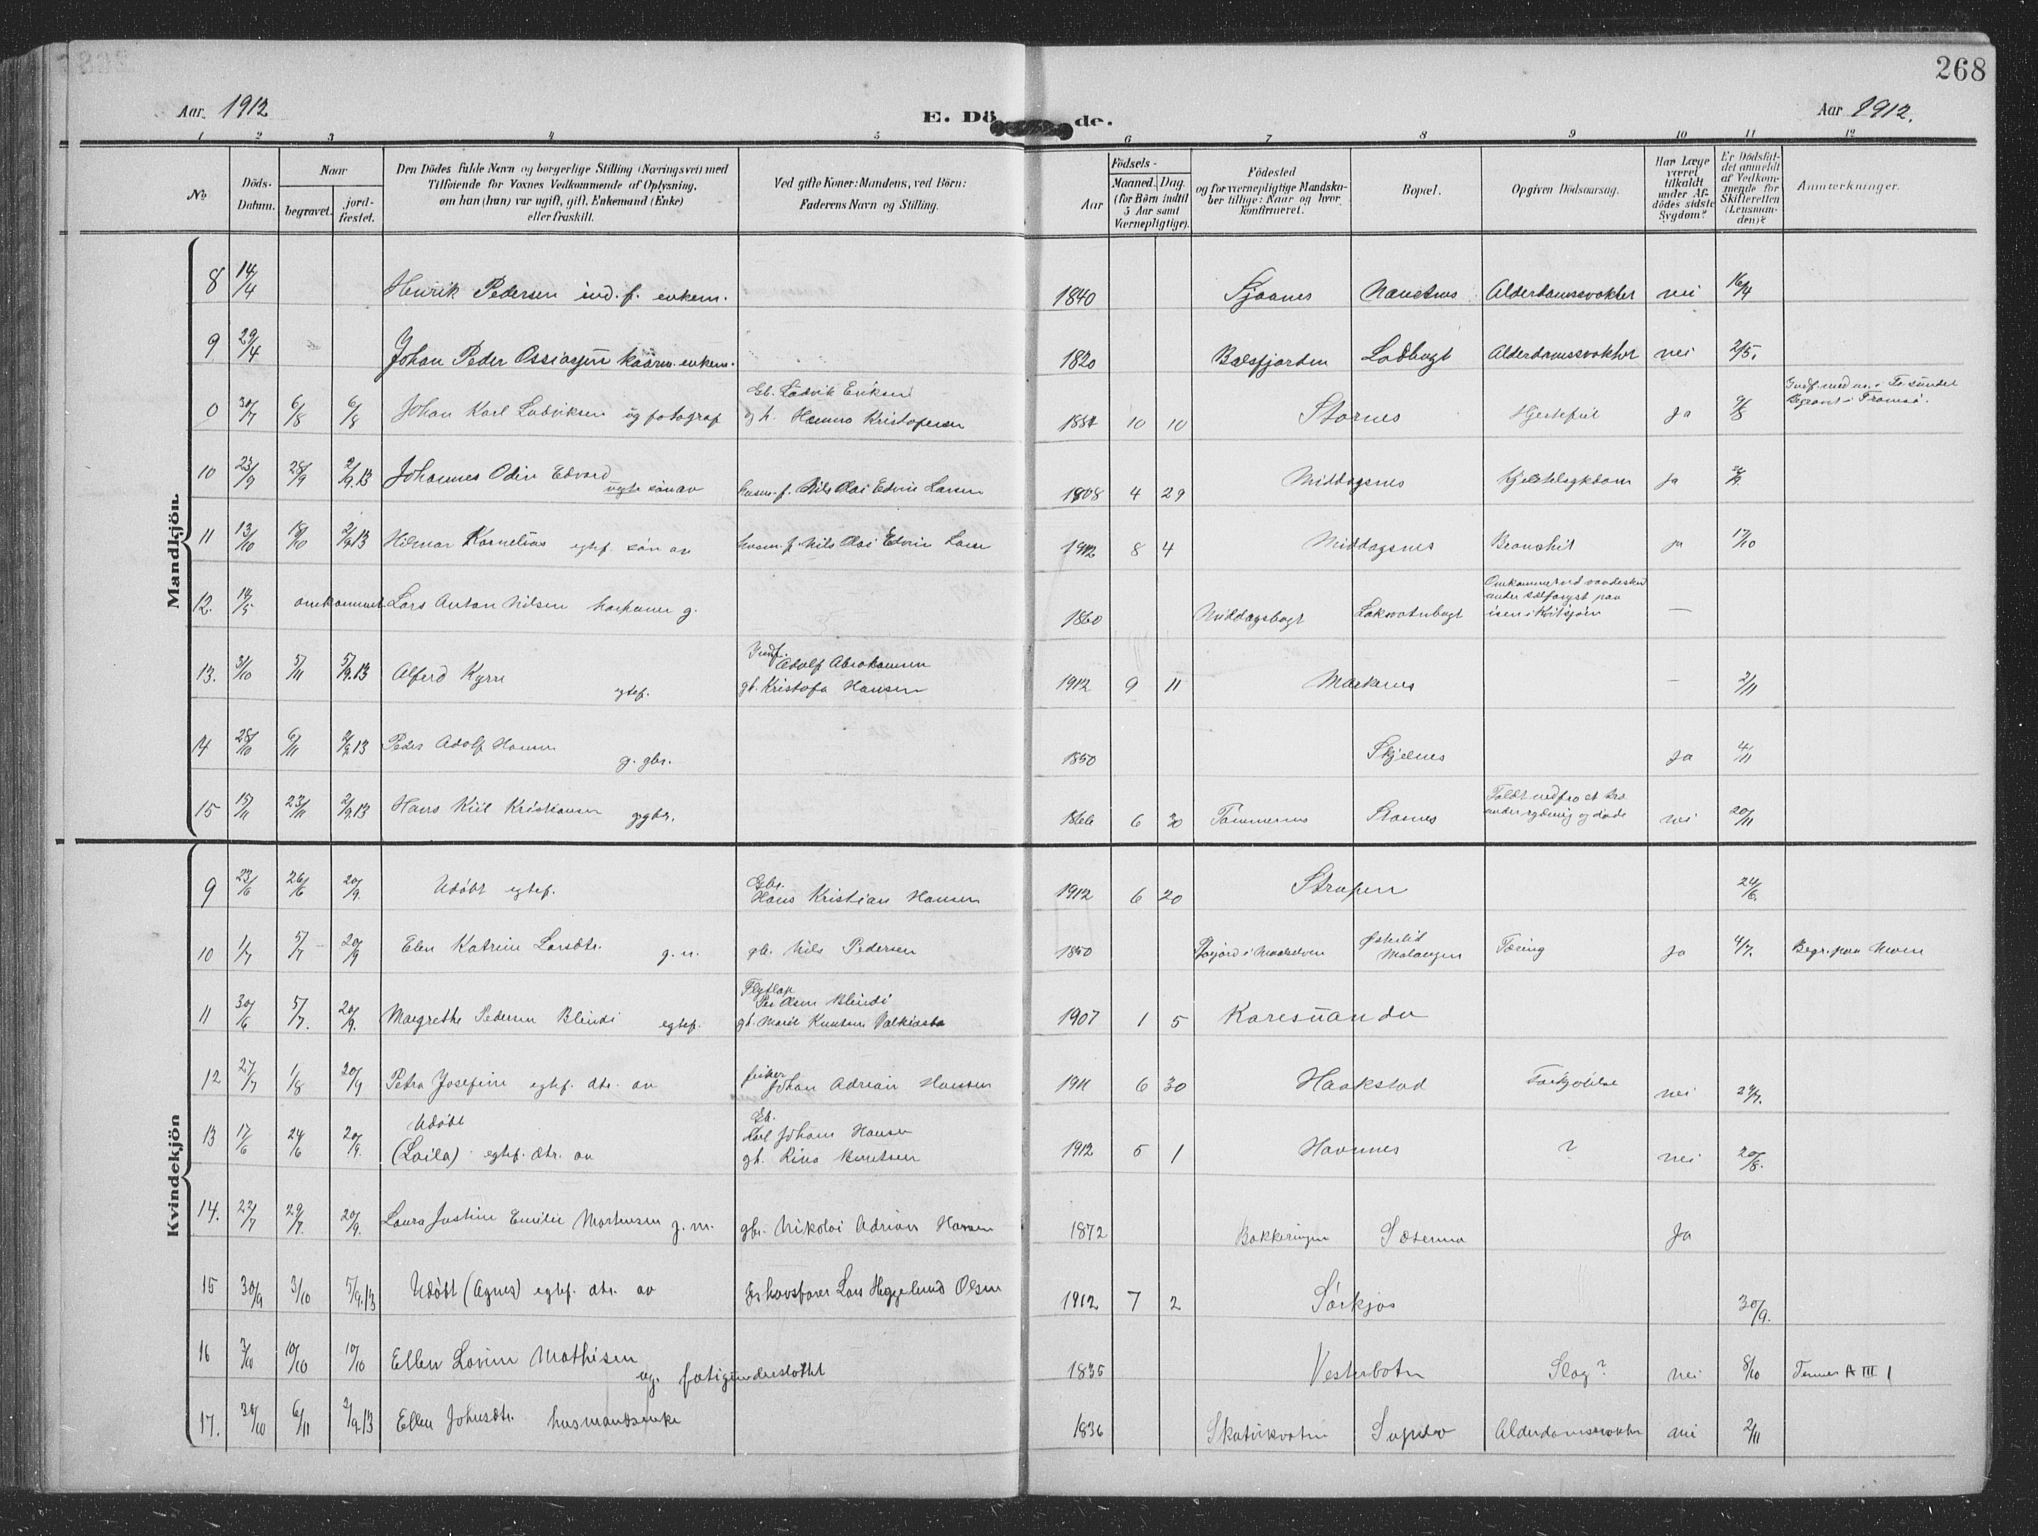 268
Aar. 1912
E. Dö de.
Aar 1912.
1 2 3 4 5 6 7 8 9 10 11 12
No.
Döds-Datum.
Naar
begravet.
jord-fæstet.
Den Dödes fulde Navn og borgerlige Stilling (Næringsvei) med
Tilföiende for Voxnes Vedkommende af Oplysning,
om han (hun) var ugift, gift, Enkemand (Enke)
eller fraskilt.
Ved gifte Koner: Mandens, ved Börn:
Faderens Navn og Stilling.
Födsels-
Aar
Maaned. Dag.
(for Börn indtil
5 Aar samt
Værnepligtige).
Födested
og for værnepligtige Mandska-
ber tillige: Naar og hvor
konfirmeret.
Bopæl.
Opgiven Dödsaarsag.
Har Læge
været
tilkaldt
under Af-
dödes sidste
Sygdom?
Er Dödsfal-
det anmeldt
af Vedkom-
mende for
Skifteretten
(Lensman-
den)?
Anmærkninger.
Mandkjön.
8 14/4 Henrik Pedersen ind. f. enkem. 1840 Sjaanes Alderdomssvakhet nei 16/4
9 29/4 Johan Peder kaarm. enkem. 1820 Balsfjorden Alderdomssvakhet nei 2/5.
0 30/7 6/8 6/8 Johan Karl Ludviksen ug fotograf Gb. Ludvik Eriksen
og h. Hanna Kristofersen 10 10 Stornes Hjertefeil Ja 9/8
Begravet i Tromsö.
10 23/9 28/9 2/9.13 Johannes Odin Edvard
egte sön av husm. f. Nils Olai Edvin Larsen 1908 4 29 Middagsnes Ja
11 13/10 18/10 2/9.13 Hilmar Kornelius egtef. sön av husm. f. Nils Olai Edvin Larsen 1912 8 4 Middagsnes ja 17/10
12. 14/5 omkommet Lars Anton Nilsen g. 1860 Middagsbugt Laksvatnbugt —
13. 31/10 5/11 5/9.13 Alferd Kyrre egtef. Indf. Adolf Abrahamsen
gb. Kristofa Hansen 1912 9 11 Markenes — 2/11
14 28/10 6/11 2/9.13 Peder Adolf Hansen g. gbr. 1850 Skjelnes Ja 4/11
15 15/11 23/11 2/9.13 Hans Kiil Kristiansen g. gbr. 1866 6 30 Tommernes nei 20/11
Kvindekjön
9 23/6 26/6 20/9. Udöbt egtef. Gbr.
Hans Kristian Hansen 1912 6 20 Strupen 24/6.
10 1/7 5/7 20/9 Elen Katrine Larsdtr. g. n. gb. Nils Pedersen 1850 Malangen Tæring Ja 4/7. Begr. paa Moen
11 30/6 5/7. 20/9. Margrethe Pedersen Blindi egtef. Flytlap
Per Olsen Blindi
gb. Marit Knutsen 1907 1 5 Karesuando
12 27/7 1/8 20/9 Petra Josefine egtef. dtr. av fisker
Johan Adrian Hansen 1911 6 30 Haakstad Forkjölelse nei 27/7.
13 17/6 24/6 20/9. Udöbt
(Laila) egtef. dtr. av Gb.
Karl Johan Hansen
gh. Rina Knutsen 1912 5 1 Havnnes ? nei 20/8.
14. 22/7 29/7. 20/9. Laura Justine Emilie Mortensen g. m. gbr. Nikolai Adrian Hansen 1872 Bakkeringen Ja
15 30/9 3/10 5/9.13 Udöbt (Agnes) egtef. dtr. av Lars Heggelund Olsen 1912 7 2 Sörkjos 30/9.
16 3/10 10/10 10/10 Ellen Lovine Mathisen
ug. fatigunderstöttet 1835 Vesterbotn Slag? nei 8/10
17. 6/11 2/9.13 Ellen Johnsdtr. husmandsenke 1836 Alderdomssvakhet nei 2/11